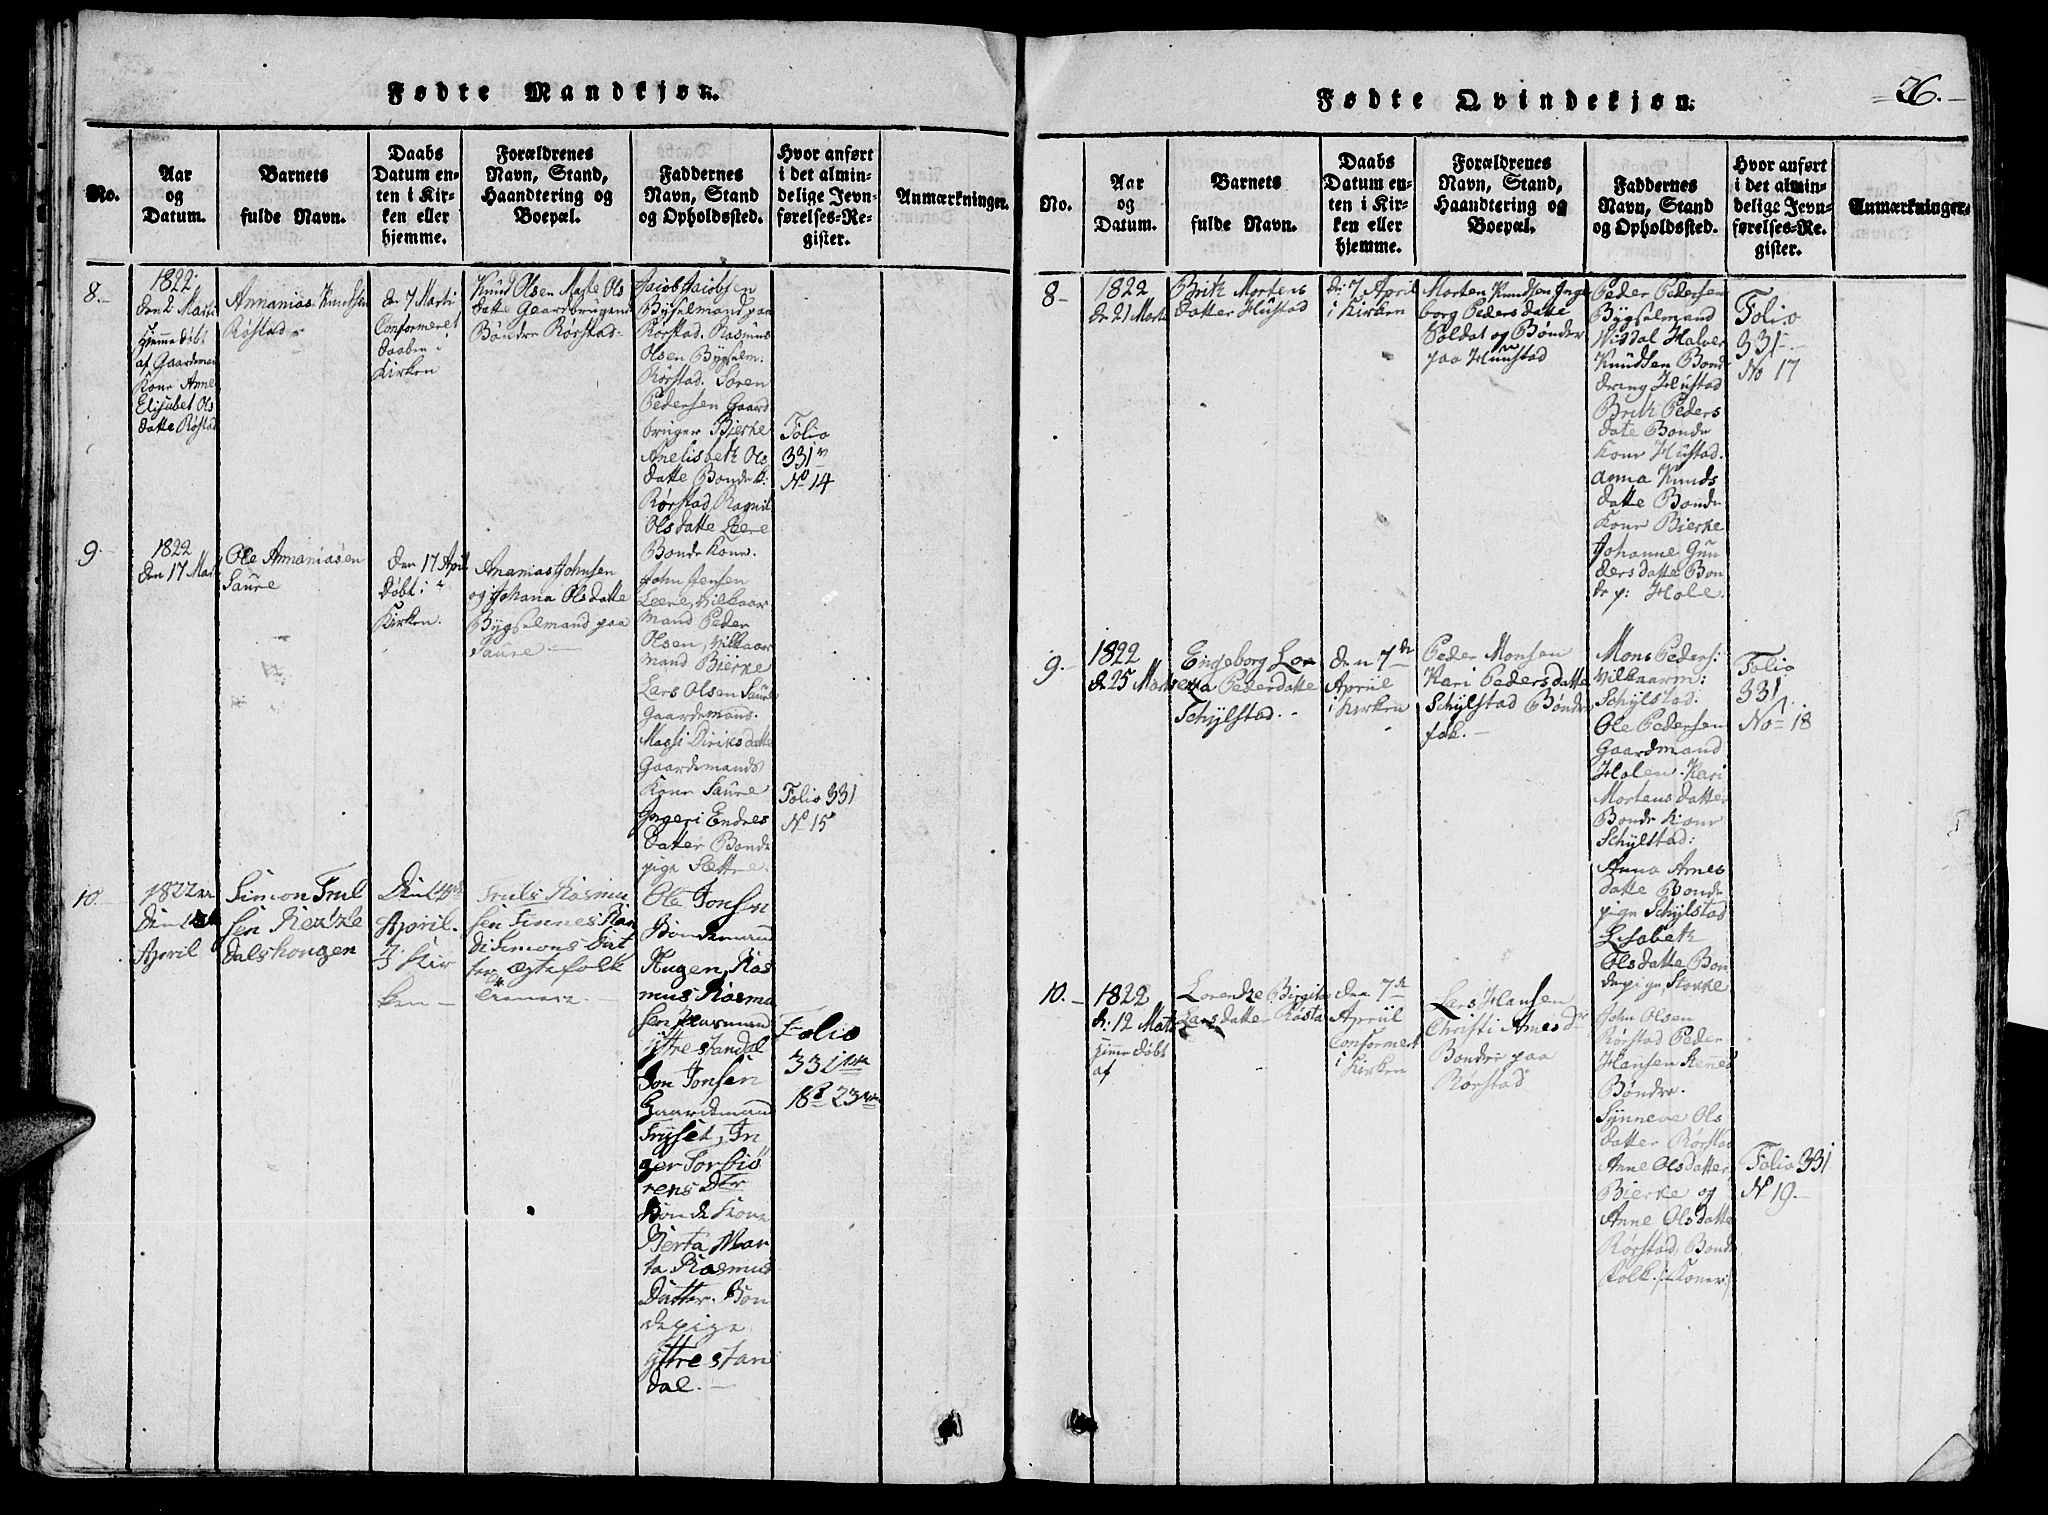 Fødte Mandkjøn.
No.
Aar
og
Datum.
Barnets
fulde Navn.
Daabs
Datum en-
ten i Kir-
ken eller
hjemme.
Forældrenes
Navn, Stand,
Haandtering og
Boepæl.
Faddernes
Navn, Stand
og Opholdssted.
Hvor anført
i det almin-
delige Jevn-
førelses-Re-
gister.
Anmærkninger.
8.
1822
den 2 Marti
Hiemedøbt
af Gaardeman
Kone Anne
Elisabet Ols
datte Røstad
Annanias Knudsen
Røstad
den 7 Marti
Conformeret
Daaben i
Kirken
Knud Olsen Ols
datte Gaardbrugend
Bøndre Rørstad
Jacob Jacobsen
Bygselmand paa
Rorstad. Rasmus
Olsen Bygselm:
Rørstad. Soren
Pedersen Gaard
bruger Bierke
Anelisbeth Ols
datte Bondek:
Rørstad, Ragnil
Olsdatte Leere
Bonde Kone.
Folio
331
No 14
9.
1822
den 17 Mart
Ole Annaniasen
Saure
den 17 April
døbt i
Kirken.
Ananias Johnsen
og Johana Olsdatte
Bygselmand paa
Saure
John Jensen
Leere, Vilkaar
mand Peder
Olsen, Vilkaar
mand Bierke
Lars Olsen Saure
Gaardemand.
Massi Diriksdatte
Gaardemands
Kone Saure
Ingeri Endres
datter Bonde
pige Sættre.
Folio 331
No 15
10.
1822
Den
April
Simon Trul
sen
dalshougen
Den 14de
April.
I Kir
ken
Truls Rasmu
sen Finnes Kar
di Simons Dat
ter Ægtefolk
Ole Jonsen
Bondemand
Hugen, Ras
mus Rasmu
sen
Ittre standal
Jon Jonsen
Gaardemand
Tryset, In
ger Torbiø
rens Dtr
Bonde Kone
Berta Mar
ta Rasmus
Datter. Bon
depige
Yttre stan
dal.
Folio
331
No 23
Fødte Qvindekjøn.
26.
No.
Aar
og
Datum.
Barnets
fulde Navn.
Daabs
Datum en-
ten i Kir-
ken eller
hjemme.
Forældrenes
Navn, Stand,
Haandtering og
Boepæl.
Faddernes
Navn, Stand
og Opholdssted.
Hvor anført
i det almin-
delige Jevn-
førelses-Re-
gister.
Anmærkninger.
8
1822
d: 21 Marti
Brith Mortens
datter Hustad
d: 7 April
i Kirken
Morten Knudsen Inge
borg Pedersdatte
Soldat og Bønder
paa Hustad
Peder Pedersen
Bygselmand
Visdal Halver
Knudsen Bond
dreng Hustad
Brith Peders
date Bonde
Kone Hustad.
Anna Knuds
datte Bonde
Kone Bierke
Johanne Gun
dersdatte Bon
de p: Hole.
Folio
331
No 17
9.
1822
d: 25 Marts
Engeborg Lor
entza Pederdatte
Schylstad.
den 7de
Apriil
i Kirken
Peder Monsen
Kari Pedersdatte
Schylstad Bønder
folk.
Mons Peders:
Vilkaarm:
Schylstad.
Ole Pedersen
Gaardmand
Holen. Kari
Mortensdatter
Bonde Kone
Schylstad:
Anna Arnes
datte Bonde
pige Schylstad
Lisabeth
Olsdatte Bon
depige, Stokke
Folio
331
No 18
10.
1822
d: 12 Mati
Hiemedøbt
af
Lorendze Birgite
Larsdatter Røsta
den 7de
Apriil
Conformert
i Kirken
Lars Hansen
Christi Arnesdr
Bondre paa
Rørstad
John Olsen
Rørstad Peder
Hansen
Bøndre.
Synneve Ols
datter Rørstad
Anne Olsdatter
Bierke og
Anne Olsdatte
Rørstad, Bonde
folk. /: Koner /
Folio 331
No 19.